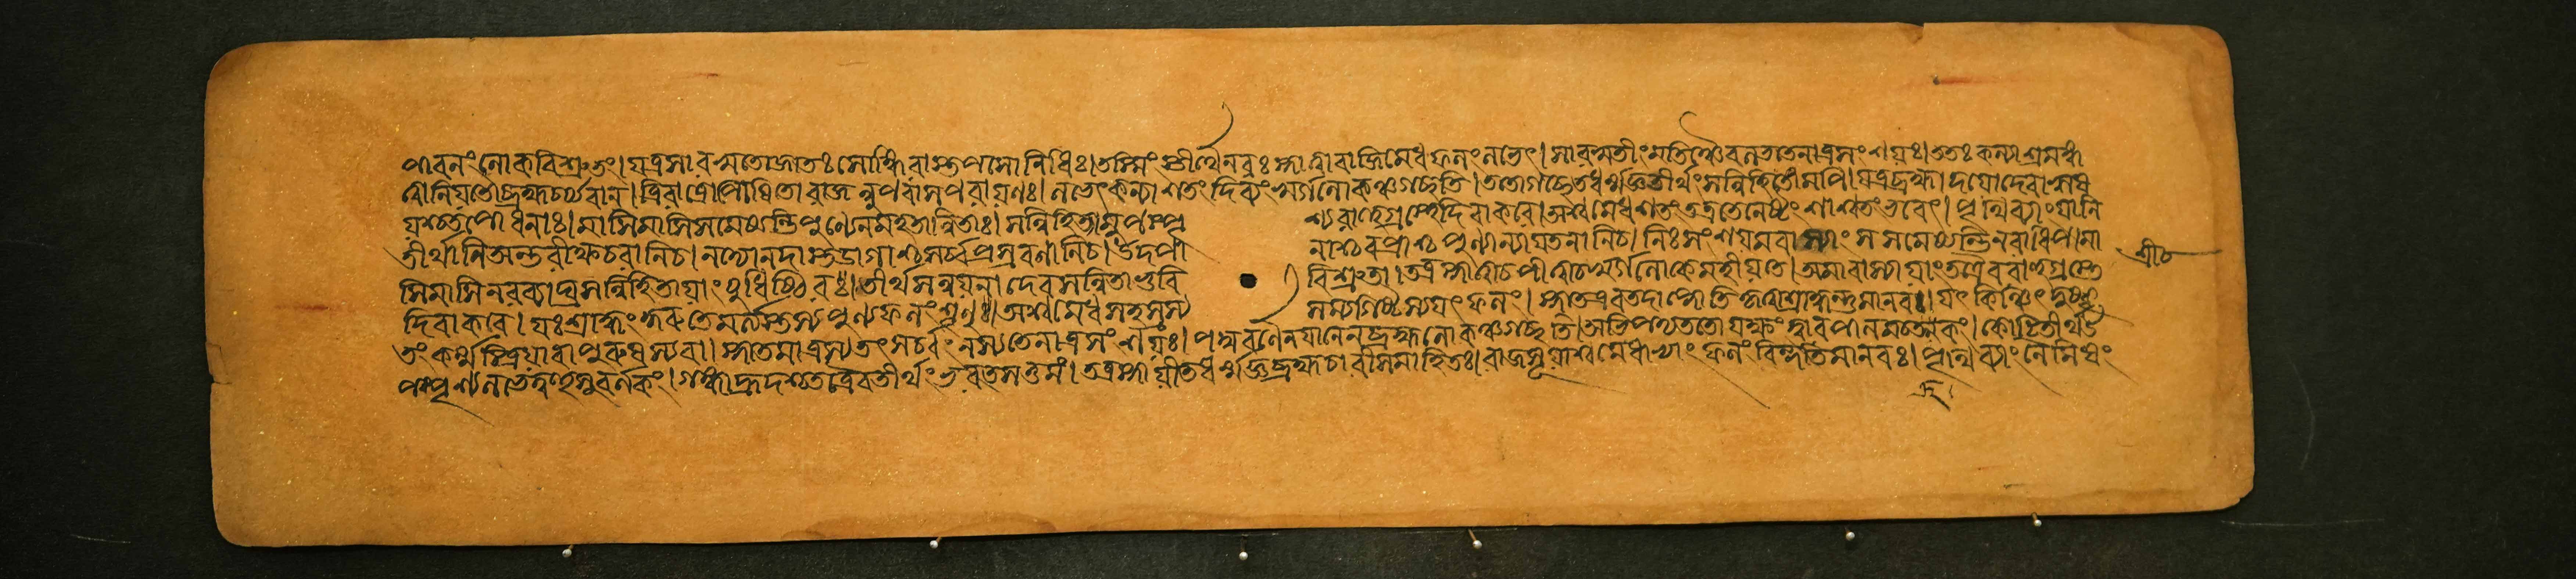 পাবনং লোকবিশ্রুতং। যত্র সারস্বতো জাতঃ সোঙ্গিরাস্তপসো নিধিঃ। তস্মিংস্তীর্থে নরঃ স্নাত্বা বাজিমেধফলং লভেৎ। সারস্বতীং গতিঞ্চৈব লভতে নাত্র সংশয়ঃ। ততঃ কন্যাশ্রমং গচ্ছে
নিয়তো ব্রহ্মচর্য্যবান্। ত্রিরাত্রোপোষিতো রাজন্নুপবাসপরায়ণঃ। লভেৎ কন্যাশতং দিব্যং স্বর্গলোকঞ্চ গচ্ছতি। ততো গচ্ছেত ধর্ম্মজ্ঞ তীর্থং সন্নিহিতীমপি। যত্র ব্রহ্মাদয়ো দেবা ঋষ
য়শ্চ তপোধনাঃ। মাসি মাসি সমেষ্যন্তি পুণ্যেন মহতান্বিতাঃ। সন্নিহিত্যামুপস্পৃ শ্য রাহুগ্রস্তে দিবাকরে। অশ্বমেধশতং তত্র তেনেষ্টং শাশ্বতং ভবেৎ। পৃথিব্যাং যানি
তীর্থানি অন্তরীক্ষচরাণি চ। নদ্যো নদাস্তড়াগাশ্চ সর্ব্বপ্রস্রবণানি চ। উদপা নাশ্চ বপ্রাশ্চ পুণ্যান্যায়তনানি চ। নিঃসংশয়মমাবাস্যাং সমেষ্যন্তি নরাধিপ। মা
সি মাসি নরব্যাঘ্র সন্নিহিত্যায়াং যুধিষ্ঠির। তীর্থসন্নয়না দেব সন্নিতা ভুবি বিশ্রুতা। তত্র স্নাত্বা চ পীত্বা চ স্বর্গলোকে মহীয়তে। অমাবাস্যায়াং তত্রৈব রাহুগ্রস্তে
দিবাকরে। যঃ শ্রাদ্ধং কুরুতে মর্ত্ত্যস্তস্য পুণ্যফলং শৃণু। অশ্বমেধসহস্রস্য সম্যগিষ্টস্য যৎ ফলং। স্নাত এব তদাপ্নোতি কৃত্বা শ্রাদ্ধন্তু মানবঃ। যৎ কিঞ্চিৎ দুষ্কৃ
তং কর্ম্ম স্ত্রিয়া বা পুরুষস্য বা। স্নাতমাত্রস্য তৎ সর্ব্বং নশ্যতে নাত্র সংশয়ঃ। পদ্মবর্ণেন যানেন ব্রহ্মলোকঞ্চ গচ্ছতি। অভিপদ্য ততো যক্ষং দ্বারপালমচক্রুকং। কোটিতীর্থউ
পস্পৃশ্য লভেদ্বহু সুবর্ণকং। গঙ্গাহ্রদশ্চ তত্রৈব তীর্থং ভরতসত্তমং। তত্র স্নায়ীত ধর্ম্মজ্ঞ ব্রহ্মচারী সমাহিতঃ। রাজসূয়াশ্বমেধাভ্যাং ফলং বিন্দতি মানবঃ। পৃথিব্যাং নৈমিষং